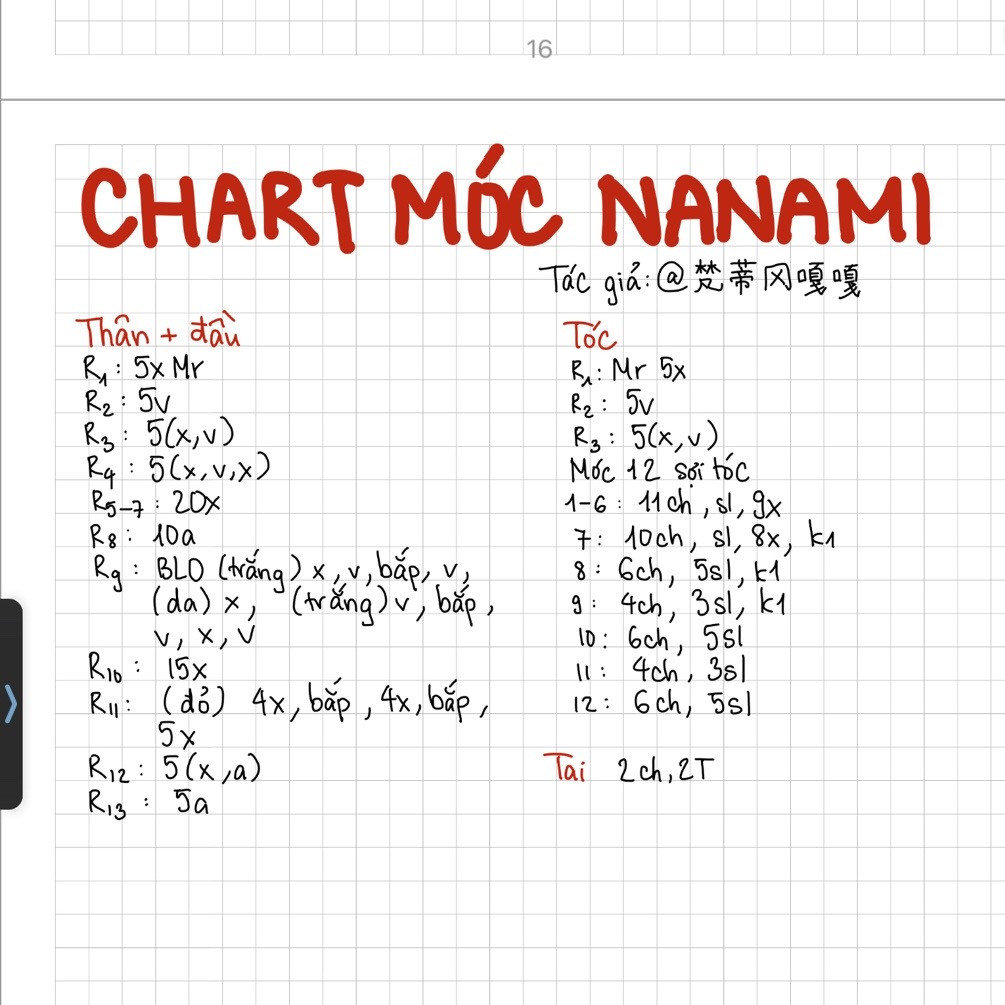 16
CHART MÓC NANAMI
Tác giả: @梵蒂冈嘎嘎
Thân + đầu
R1 : 5x Mr
R2 : 5v
R3 : 5(x,v)
R4 : 5(x,v,x)
R5-7 : 20x
R8 : 10a
R9 : BLO (trắng) x, v, bắp, v,
(da) x, (trắng) v, bắp,
v, x, v
R10 : 15x
R11 : (đỏ) 4x, bắp, 4x, bắp,
5x
R12 : 5(x,a)
R13 : 5a
Tóc
R1 : Mr 5x
R2 : 5v
R3 : 5(x,v)
Móc 12 sợi tóc
1-6 : 11ch, sl, 9x
7 : 10ch, sl, 8x, k1
8 : 6ch, 5sl, k1
9 : 4ch, 3sl, k1
10 : 6ch, 5sl
11 : 4ch, 3sl
12 : 6ch, 5sl
Tai 2ch, 2T